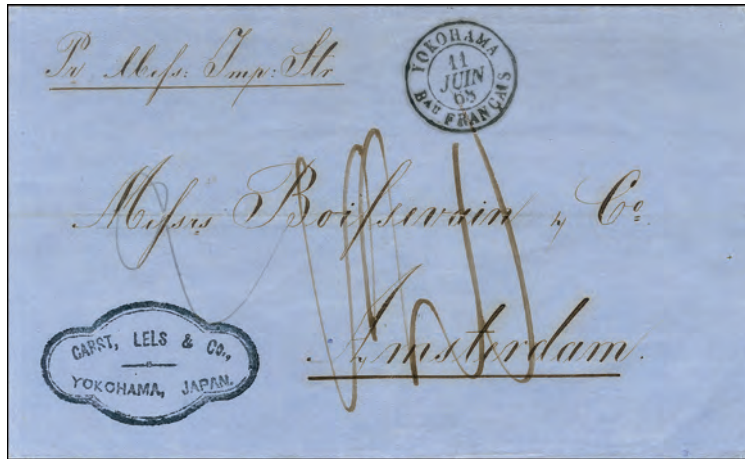 Pr Mess: Imp: Str
YOKOHAMA
11
JUIN
68
Bau FRANÇAIS
Messrs Boissevain & Co.
Amsterdam.
CARST, LELS & Co.,
YOKOHAMA, JAPAN.